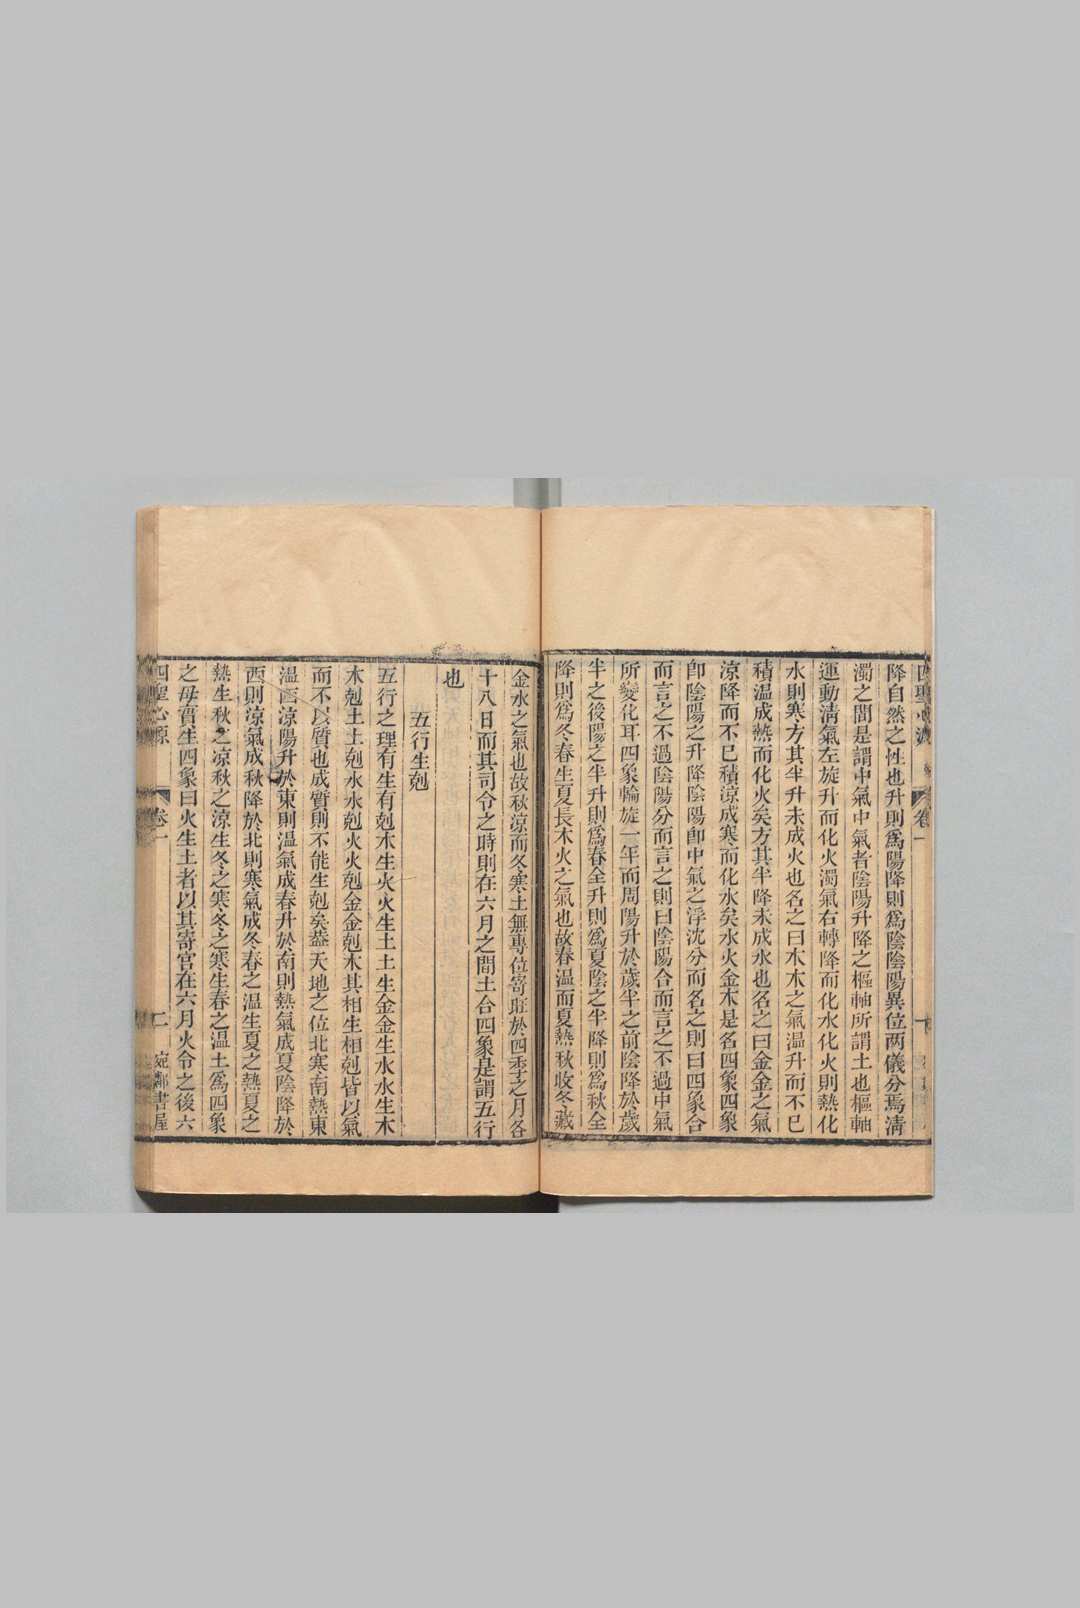 降自然之性也升則爲陽降則爲陰陰陽異位兩儀分焉清
濁之間是謂中氣中氣者陰陽升降之樞軸所謂土也樞軸
運動清氣左旋升而化火濁氣右轉降而化水化火則熱化
水則寒方其半升未成火也名之曰木木之氣温升而不已
積温成熱而化火矣方其半降未成水也名之曰金金之氣
涼降而不已積涼成寒而化水矣水火金木是名四象四象
卽陰陽之升降陰陽卽中氣之浮沈分而名之則曰四象合
而言之不過陰陽分而言之則曰陰陽合而言之不過中氣
所變化耳四象輪旋一年而周陽升於歲半之前陰降於歲
半之後陽之半升則爲春全升則爲夏陰之半降則爲秋全
降則爲冬春生夏長木火之氣也故春温而夏熱秋收冬藏
金水之氣也故秋涼而冬寒土無專位寄旺於四季之月各
十八日而其司令之時則在六月之間土合四象是謂五行
也
五行生剋
五行之理有生有剋木生火火生土土生金金生水水生木
木剋土土剋水水剋火火剋金金剋木其相生相剋皆以氣
而不以質也成質則不能生剋矣蓋天地之位北寒南熱東
温西涼陽升於東則温氣成春升於南則熱氣成夏陰降於
西則涼氣成秋降於北則寒氣成冬春之温生夏之熱夏之
熱生秋之凉秋之涼生冬之寒冬之寒生春之温土爲四象
之母實生四象曰火生土者以其寄宫在六月火令之後六
四聖心源
卷一
二
宛鄰書屋